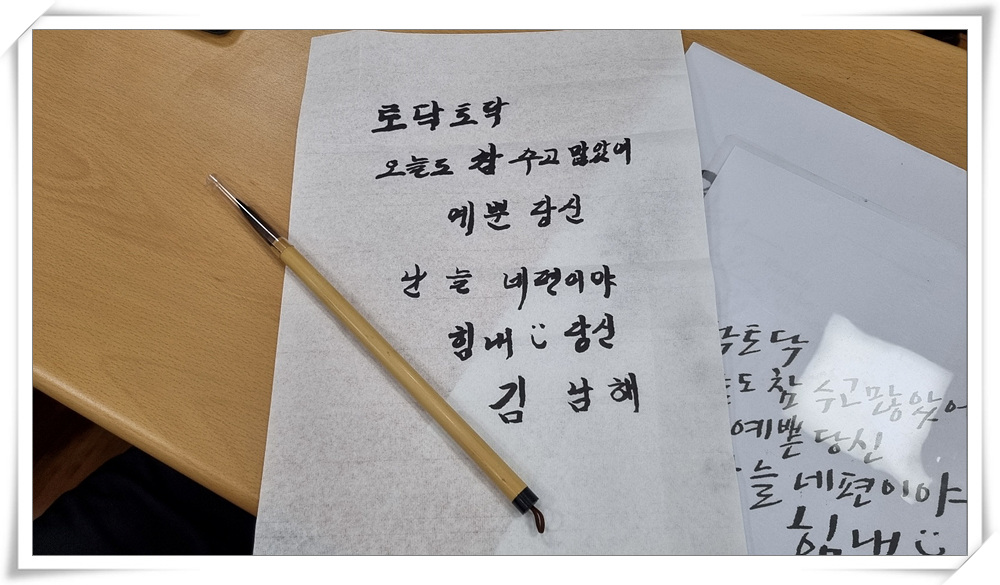 토닥토닥
오늘도 참 수고많았어
예쁜 당신
난 늘 네편이야
힘내 :) 당신
김남해
토닥
도 참 수고많았어
예쁜 당신
늘 네편이야
힘내 :)